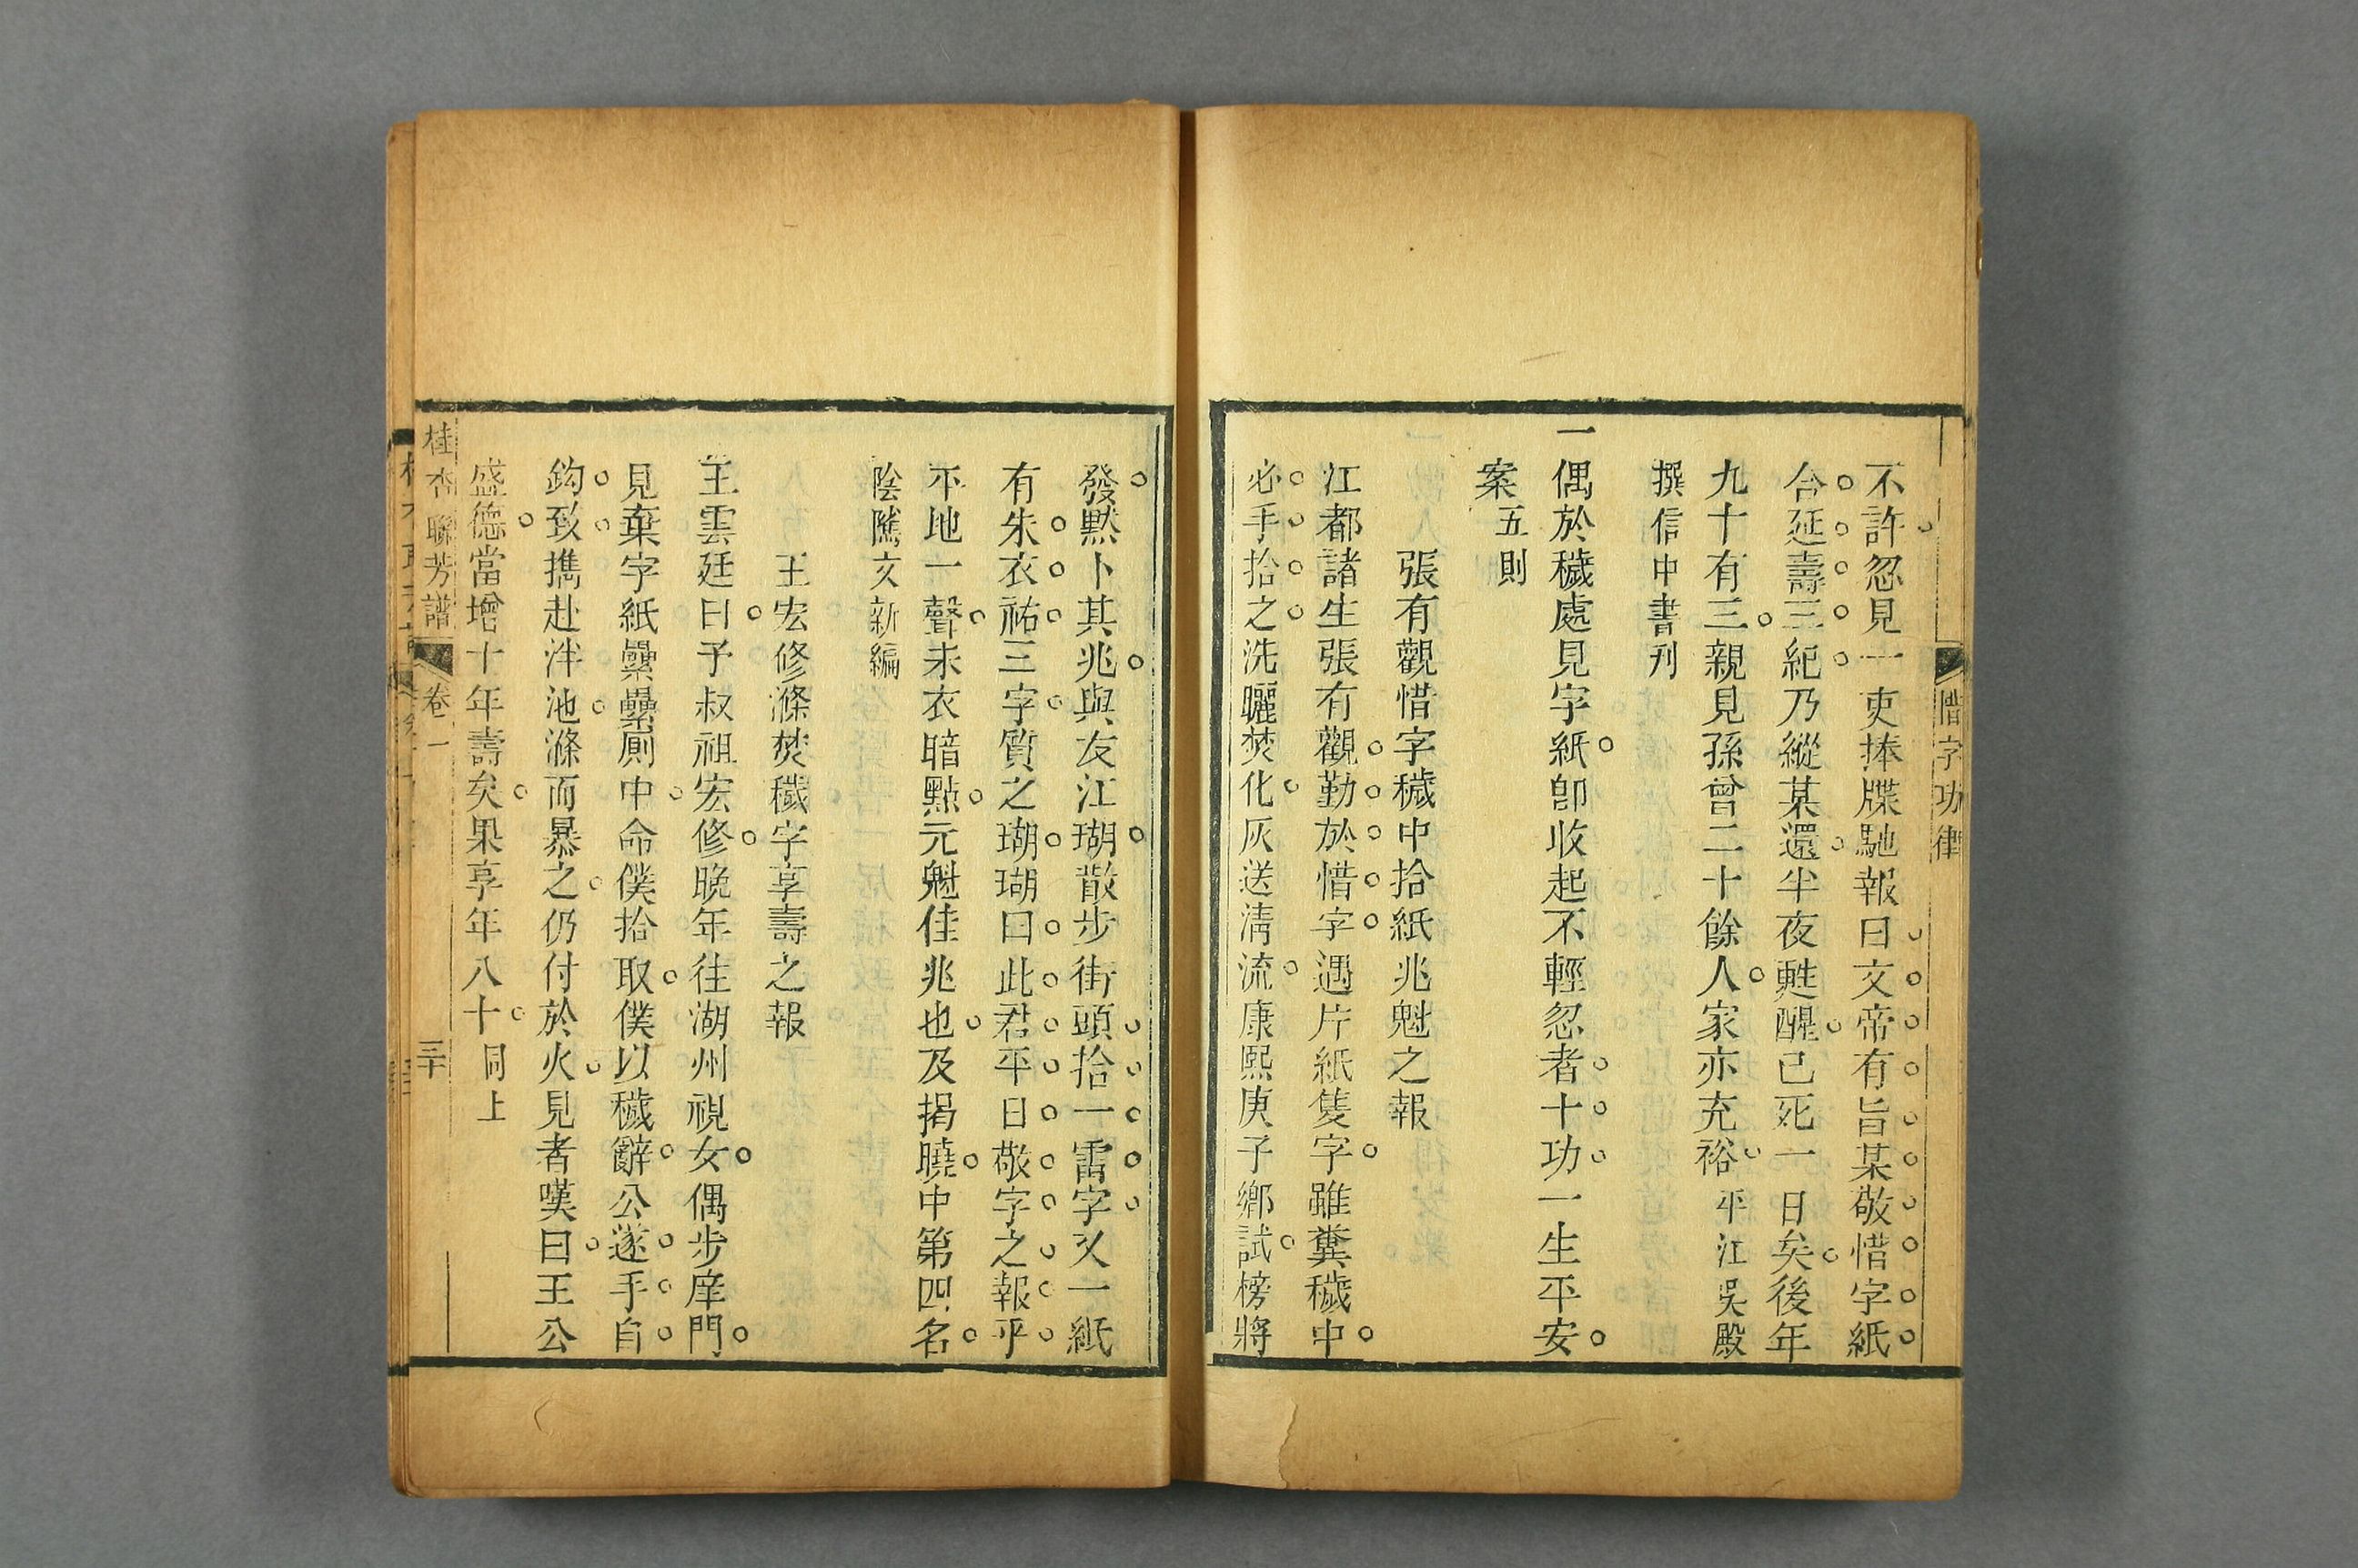 惜字功律
不許忽見一吏捧牒馳報曰文帝有旨某敬惜字紙
合延壽三紀乃縱某還半夜甦醒已死一日矣後年
九十有三親見孫曾二十餘人家亦充裕平江吳殿
撰信中書刋
一偶於穢處見字紙卽收起不輕忽者十功一生平安
案五則
張有觀惜字穢中拾紙兆魁之報
江都諸生張有觀勤於惜字遇片紙隻字雖糞穢中
必手拾之洗曬焚化灰送淸流康熙庚子鄉試榜將
發黙卜其兆與友江瑚散步街頭拾一雷字乂一紙
有朱衣祐三字質之瑚瑚曰此君平日敬字之報平
不地一聲朱衣暗點元魁佳兆也及揭曉中第四名
陰隲文新編
王宏修滌焚穢字享壽之報
王雲廷曰予叔祖宏修晚年往湖州視女偶步庠門
見棄字紙纍纍厠中命僕拾取僕以穢辭公遂手自
鈎致攜赴泮池滌而暴之仍付於火見者嘆曰王公
盛德當增十年壽矣果享年八十同上
桂杏聯芳譜 卷一 三十